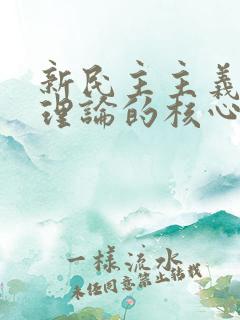 新民主主義
理論的核心
一樣流水
未經同意禁止轉載